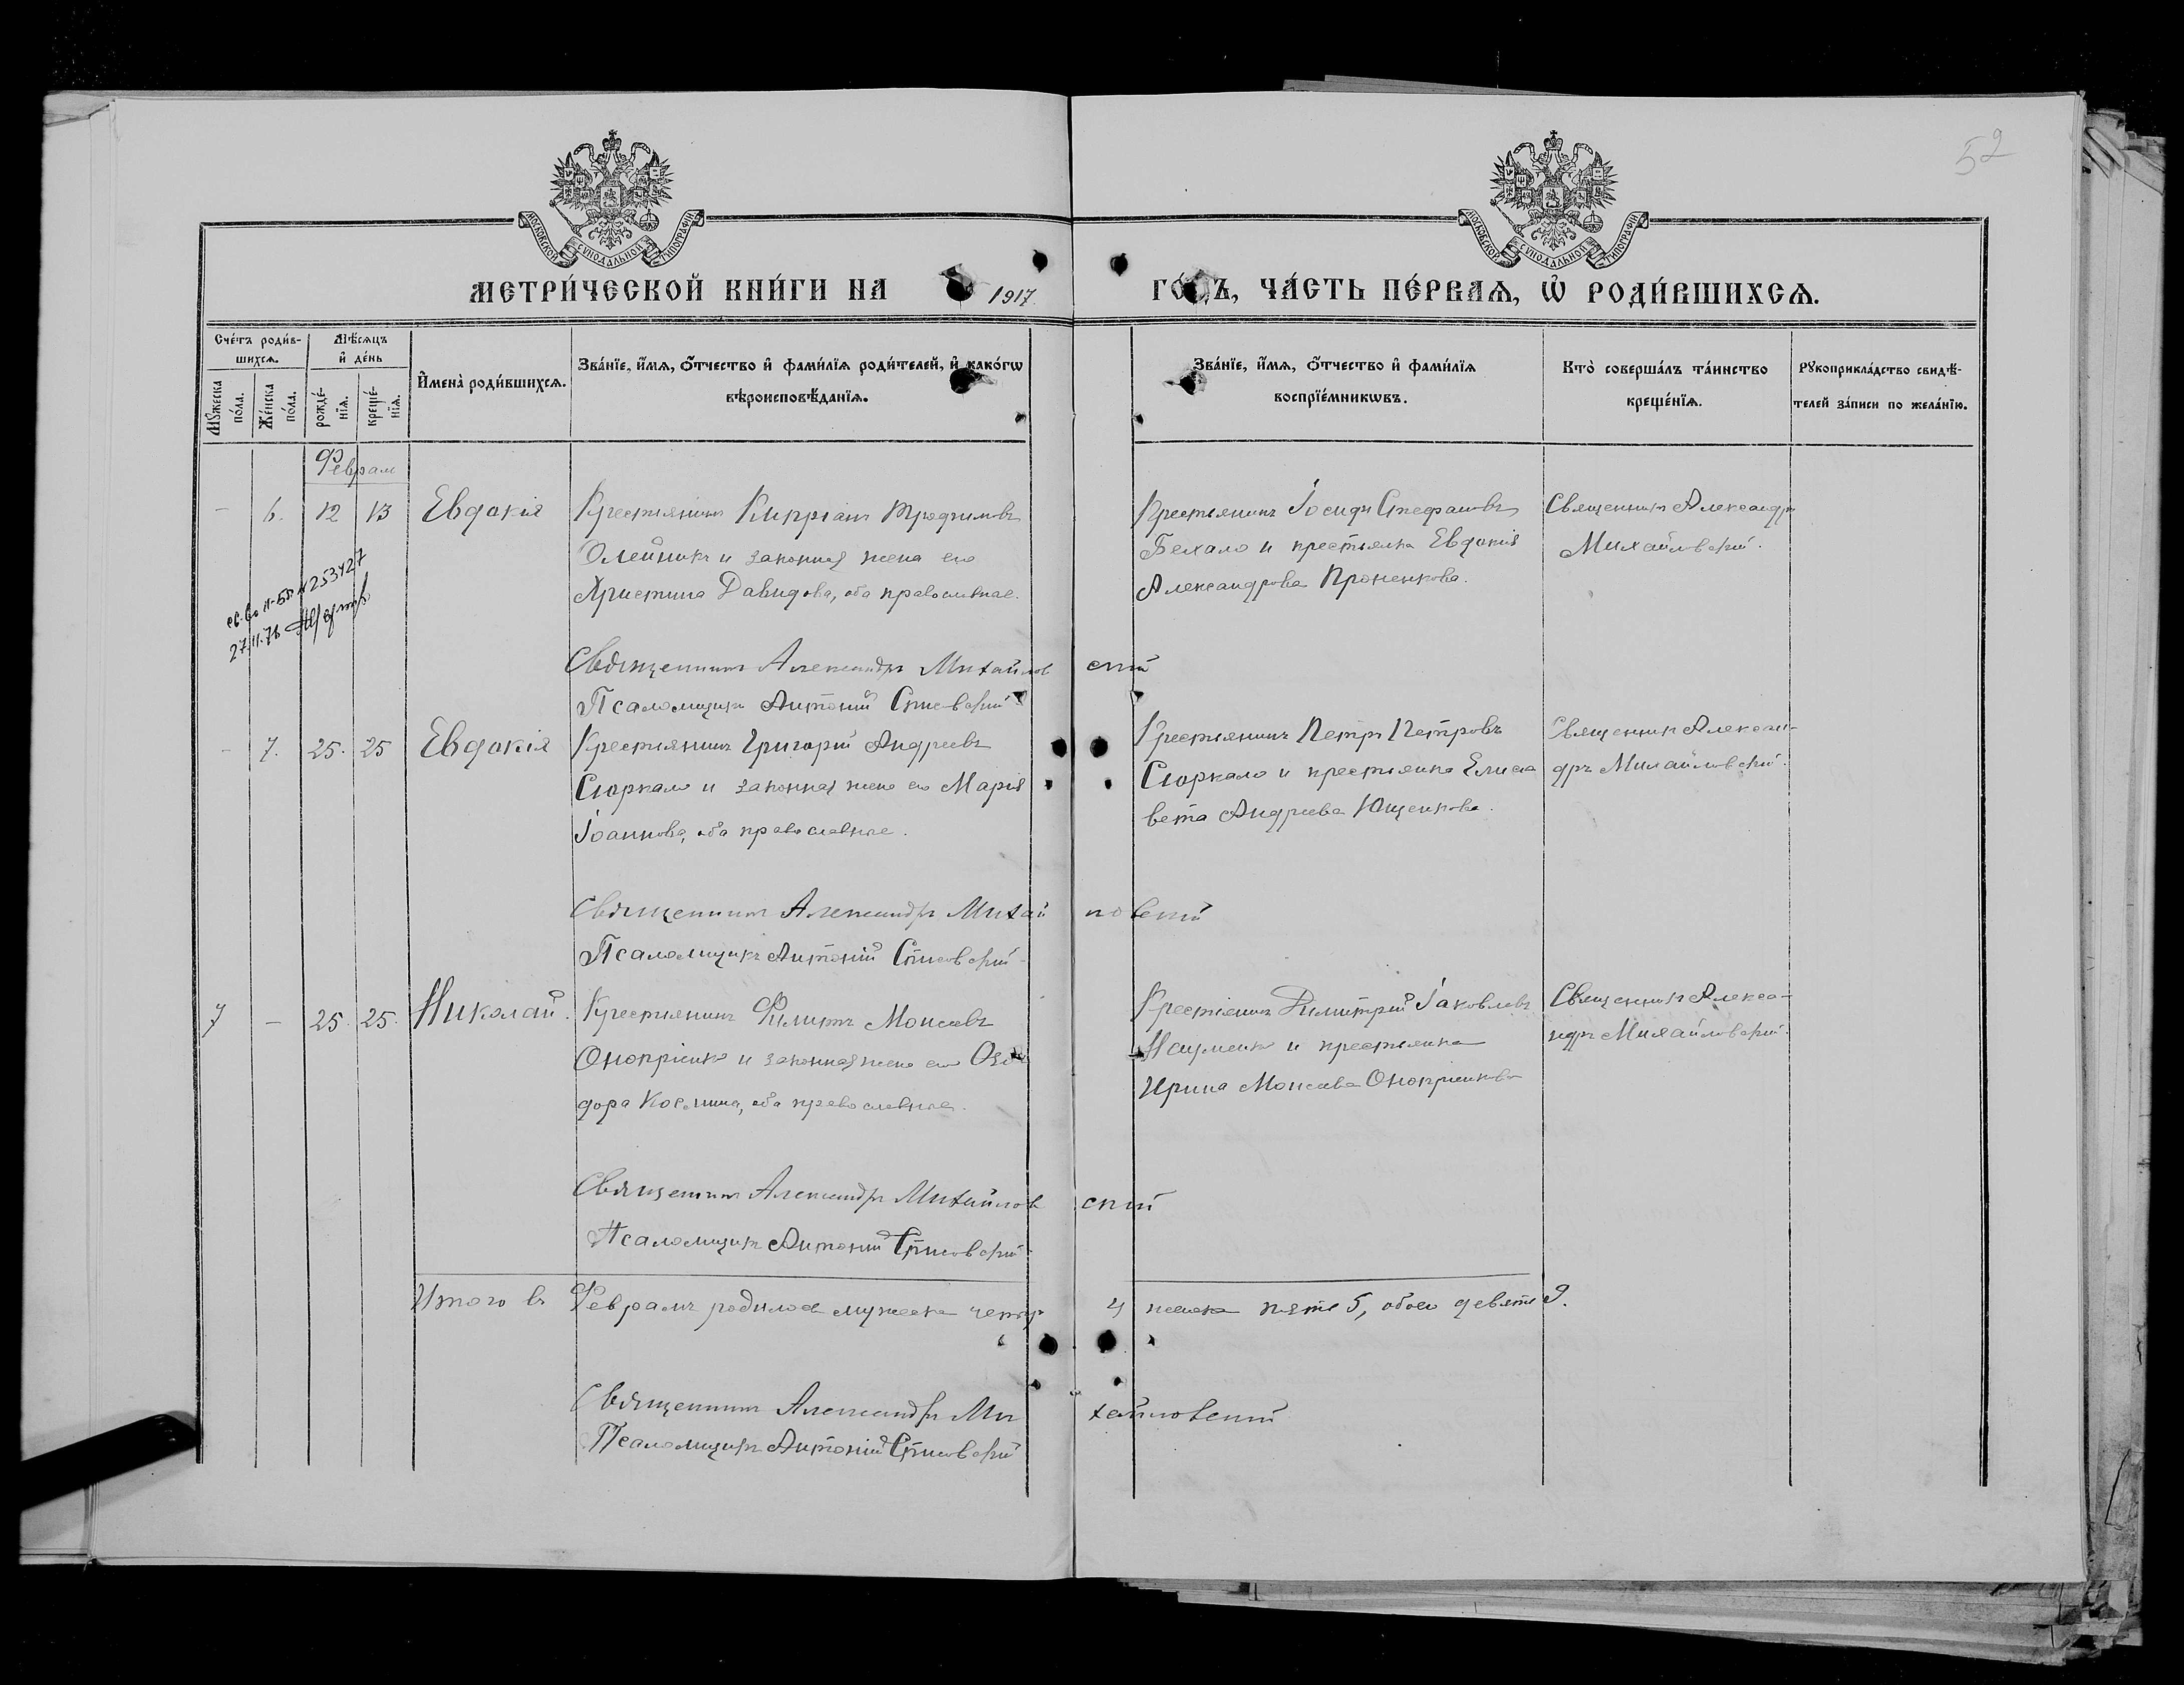 52
МОСКОВСКОЙ СѴНОДАЛЬНОЙ ТИПОГРАФІИ
МОСКОВСКОЙ СѴНОДАЛЬНОЙ ТИПОГРАФІИ
МЕТРИ́ЧЕСКОЙ КНИ́ГИ НА 1917 ГО́ДЪ, ЧА́СТЬ ПЕ́РВАѦ, Ѡ҆ РОДИ́ВШИХСѦ.
Сче́тъ роди́в-
шихсѧ.
Мꙋ́жеска по́ла.
Же́нска по́ла.
Мѣ́сѧцъ
и҆ де́нь
рожде́-
нїѧ.
креще́-
нїѧ.
И҆мена̀ роди́вшихсѧ.
Зва́нїе, и҆́мѧ, ѻ҆́тчество и҆ фами́лїѧ роди́телей, и҆ како́гѡ
вѣроисповѣ́данїѧ.
Зва́нїе, и҆́мѧ, ѻ҆́тчество и҆ фами́лїѧ
воспрїе́мникѡвъ.
Кто̀ соверша́лъ та́инство
креще́нїѧ.
Рꙋкоприкла́дство свидѣ́-
телей за́писи по жела́нїю.
Феврал
– 6. 12 13 Евдокія
Крестьянинъ Кипріанъ Трофимовъ
Олейникъ и законная жена его
Христина Давидова, оба православные.
Крестьянинъ Іосифъ Стефановъ
Бехало и крестьянка Евдокія
Александрова Проненкова.
Священникъ Александръ
Михайловскій.
253427
27.11.76
Священникъ Александръ Михайловскій
Псаломщикъ Антоній
– 7. 25. 25 Евдокія
Крестьянинъ Григорій Андреевъ
Сюркало и законная жена его Марія
Іоаннова, оба православные.
Крестьянинъ Петръ Петровъ
Сюркало и крестьянка Елиса
вета Андреева Ющенкова.
Священникъ Алексан-
дръ Михайловскій.
Священникъ Александръ Михайловскій
Псаломщикъ Антоній
7 – 25. 25. Николай.
Крестьянинъ Филиппъ Моисеевъ
Оноприенко и законная жена его Ѳео
дора Космина, оба православные.
Крестьянинъ Димитрій Іаковлевъ
Науменко и крестьянка
Ирина Моисеева Оноприенкова
Священникъ Алекса-
ндръ Михайловскій.
Священникъ Александръ Михайловскій
Псаломщикъ Антоній
Итого въ Февралѣ родилось мужеска четыр 4 женска пять 5, обоего девять 9.
Священникъ Александръ Михайловскій
Псаломщикъ Антоній